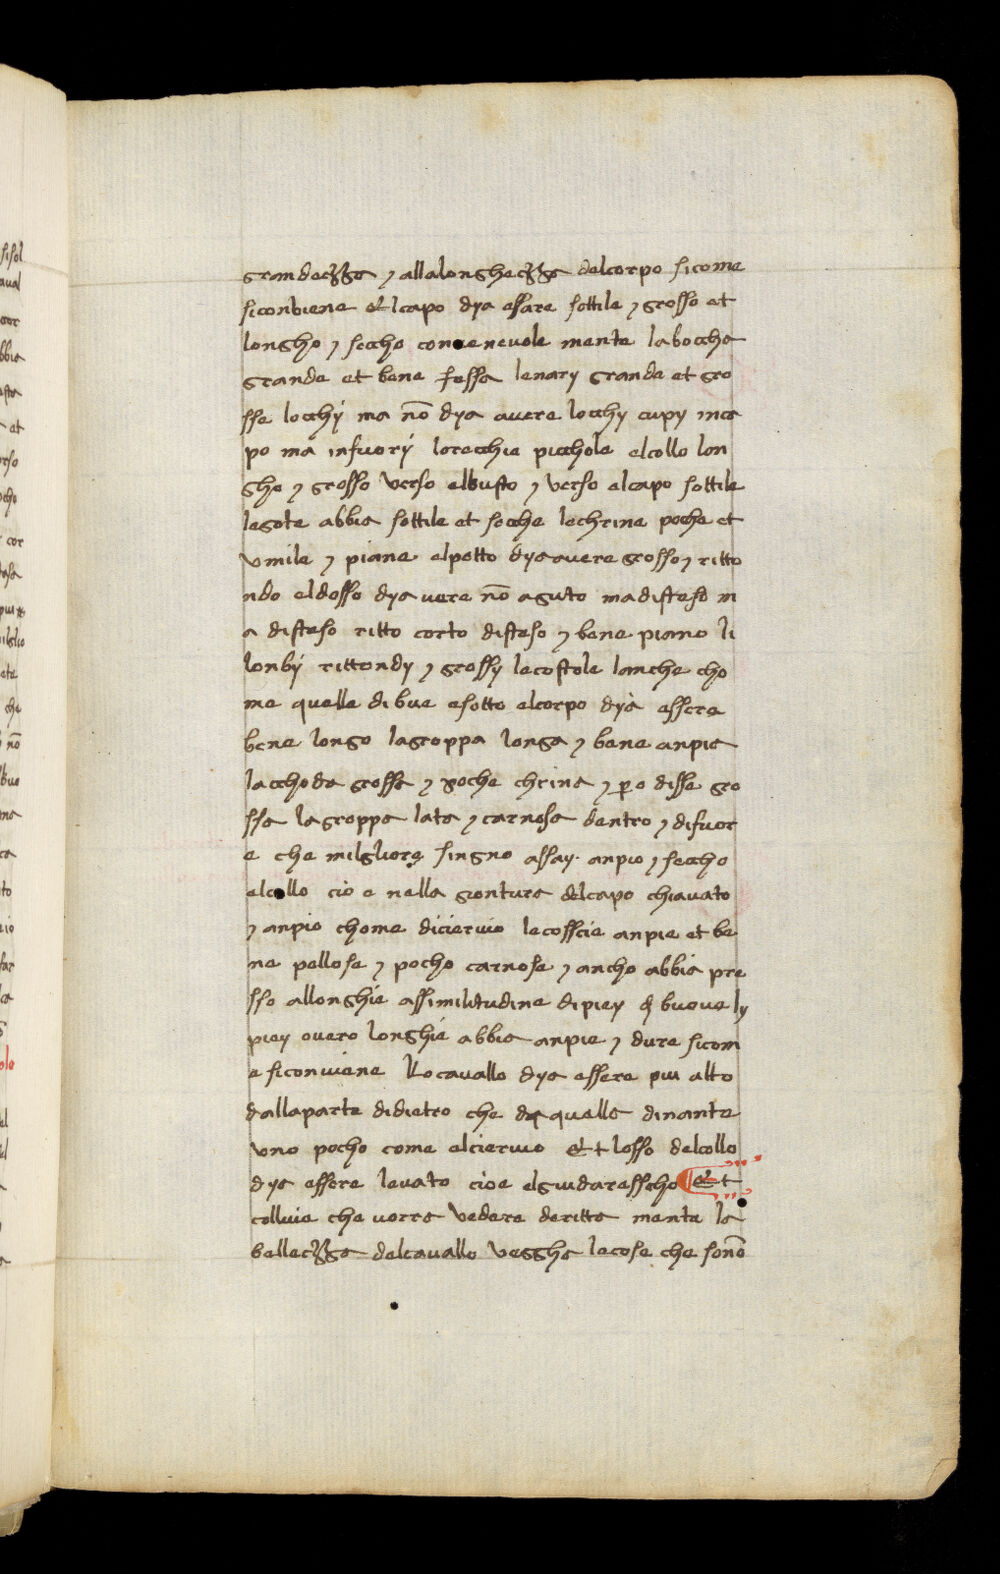 grandeczza ⁊ allalongheczza delcorpo sicome
siconbiene et lcapo dya essare sottile ⁊ grosso et
longho ⁊ seccho conuenevole mente laboccha
grande et bene fessa lenary grande et gro
sse locchÿ ma nō dya auere locchy cupy inca
po ma infuorÿ lorecchie picchole elcollo lon
gho ⁊ grosso verso elbusto ⁊ verso elcapo sottile
legote abbia sottile et secche lechrine poche et
vmile ⁊ piane elpetto dyaauere grosso ⁊ ritto
ndo eldosso dyauere nō aguto madisteso m
a disteso ritto corto disteso ⁊ bene piano li
lonbÿ rittondy ⁊ grossy lecostole lanche cho
me quelle di bue esotto elcorpo dya essere
bene longo lagroppa longa ⁊ bene anpia
lacchoda grossa ⁊ poche chrina ⁊ ꝑo disse gro
ssa lagroppa lata ⁊ carnosa dentro ⁊ difuor
e che milgliore singno assay· anpio ⁊ seccho
elcollo cio e nella giontura delcapo chiauato
⁊ anpio chome diciervio lecosscie anpie et be
ne pellose ⁊ pocho carnose ⁊ ancho abbia pre
sso allonghie assimilitudine dipiey di buoue ly
piey ouero longhie abbia anpie ⁊ dure sicom
e siconuiene Llocauallo dya essere piu alto
dallaparte didietro che da quella dinante
vno pocho come elcieruio et t losso delcollo
dya essere leuato cioe elguidaresscho et
colluie che uorra vedere deritta mente la
belleczza delcauallo vaggha lecose che sonō